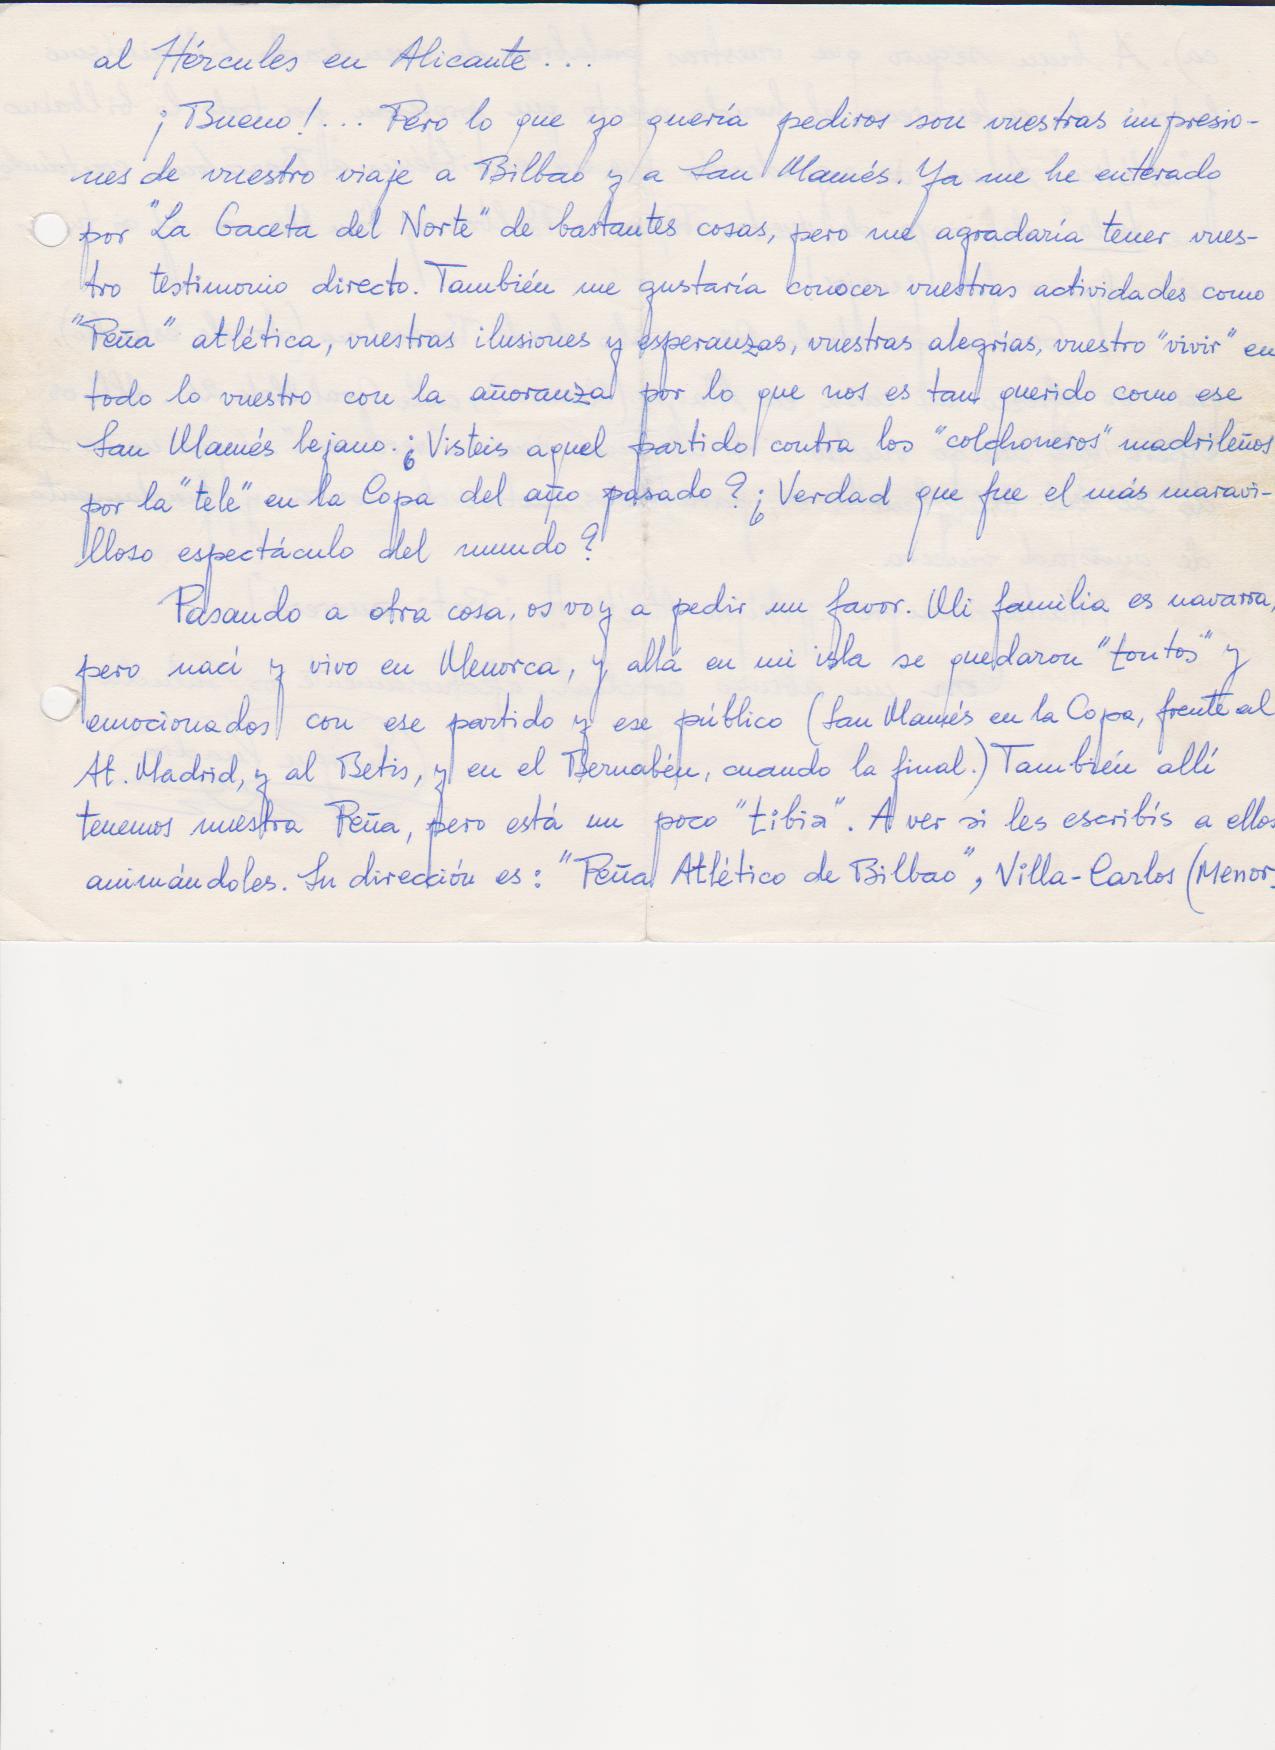 al Hércules en Alicante...
¡Bueno!... Pero lo que yo quería pediros son vuestras impresio-
nes de vuestro viaje a Bilbao y a San Mamés. Ya me he enterado
por "La Gaceta del Norte" de bastantes cosas, pero me agradaría tener vues-
tro testimonio directo. También me gustaría conocer vuestras actividades como
"Peña" atlética, vuestras ilusiones y esperanzas, vuestras alegrías, vuestro "vivir" en
todo lo vuestro con la añoranza por lo que nos es tan querido como ese
San Mamés lejano. ¿Visteis aquel partido contra los "colchoneros" madrileños
por la "tele" en la Copa del año pasado? ¿Verdad que fue el más maravi-
lloso espectáculo del mundo?
Pasando a otra cosa, os voy a pedir un favor. Mi familia es navarra,
pero nací y vivo en Menorca, y allá en mi isla se quedaron "tontos" y
emocionados con ese partido y ese público (San Mamés en la Copa, frente al
At. Madrid, y al Betis, y en el Bernabéu, cuando la final.) También allí
tenemos nuestra Peña, pero está un poco "tibia". A ver si les escribís a ellos
animándoles. Su dirección es: "Peña Atlético de Bilbao", Villa-Carlos (Menor-